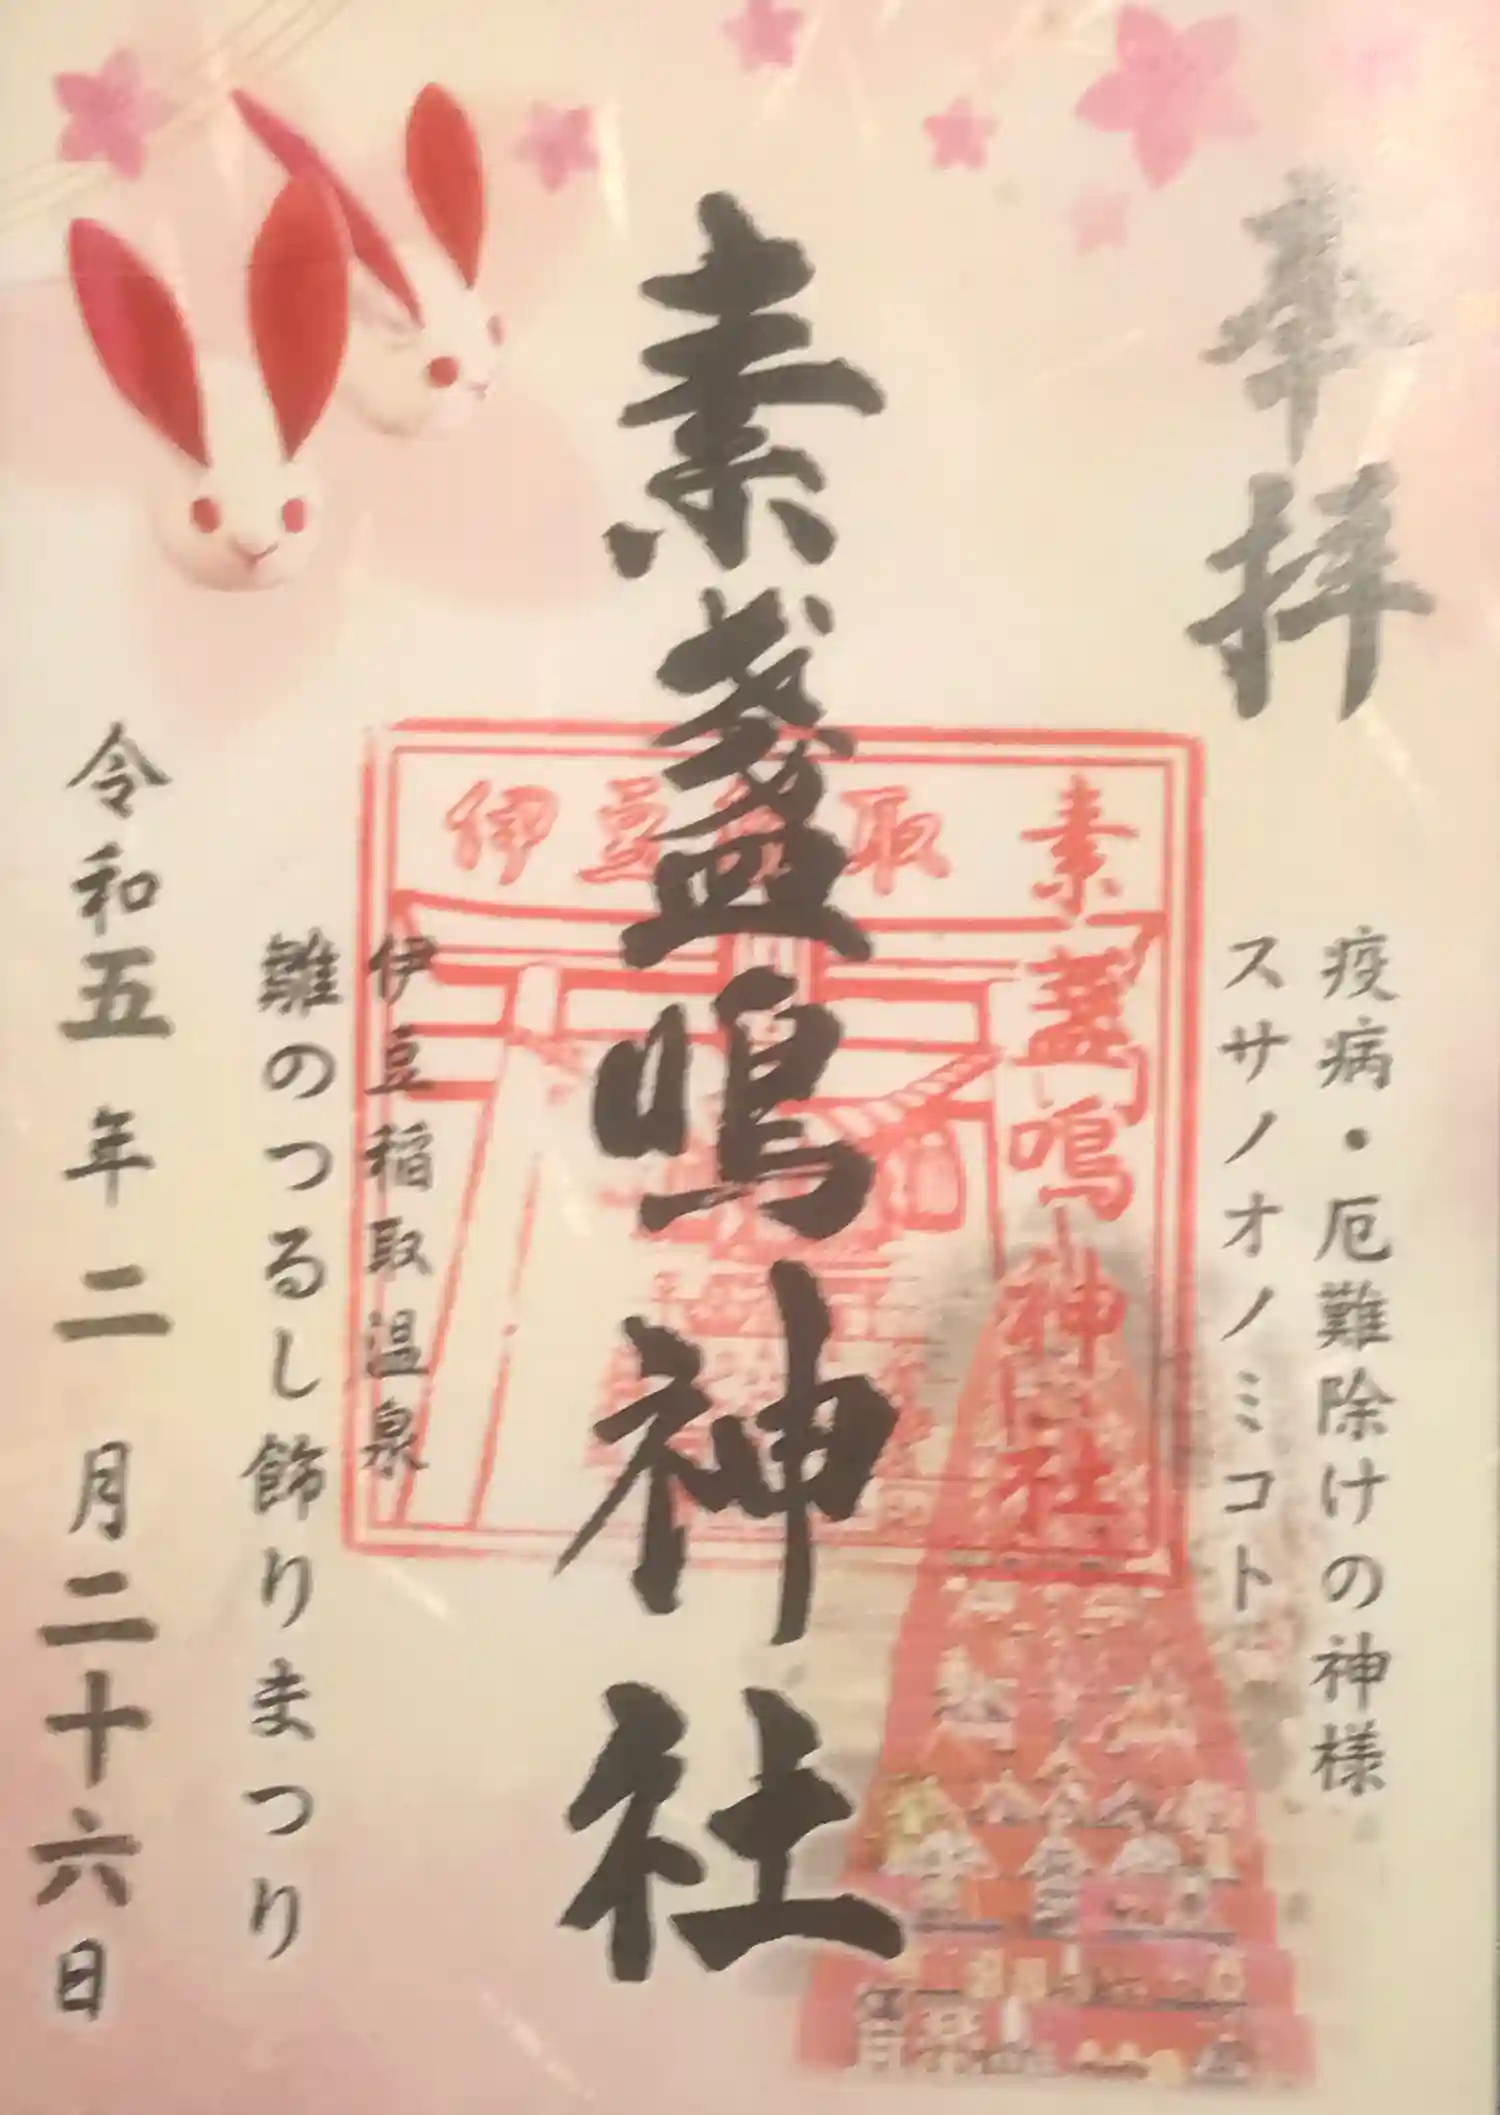 奉拝
疫病・厄難除けの神様
スサノオノミコト
素盞嗚神社
伊豆稲取
素盞嗚神社
伊豆稲取温泉
雛のつるし飾りまつり
令和五年二月二十六日